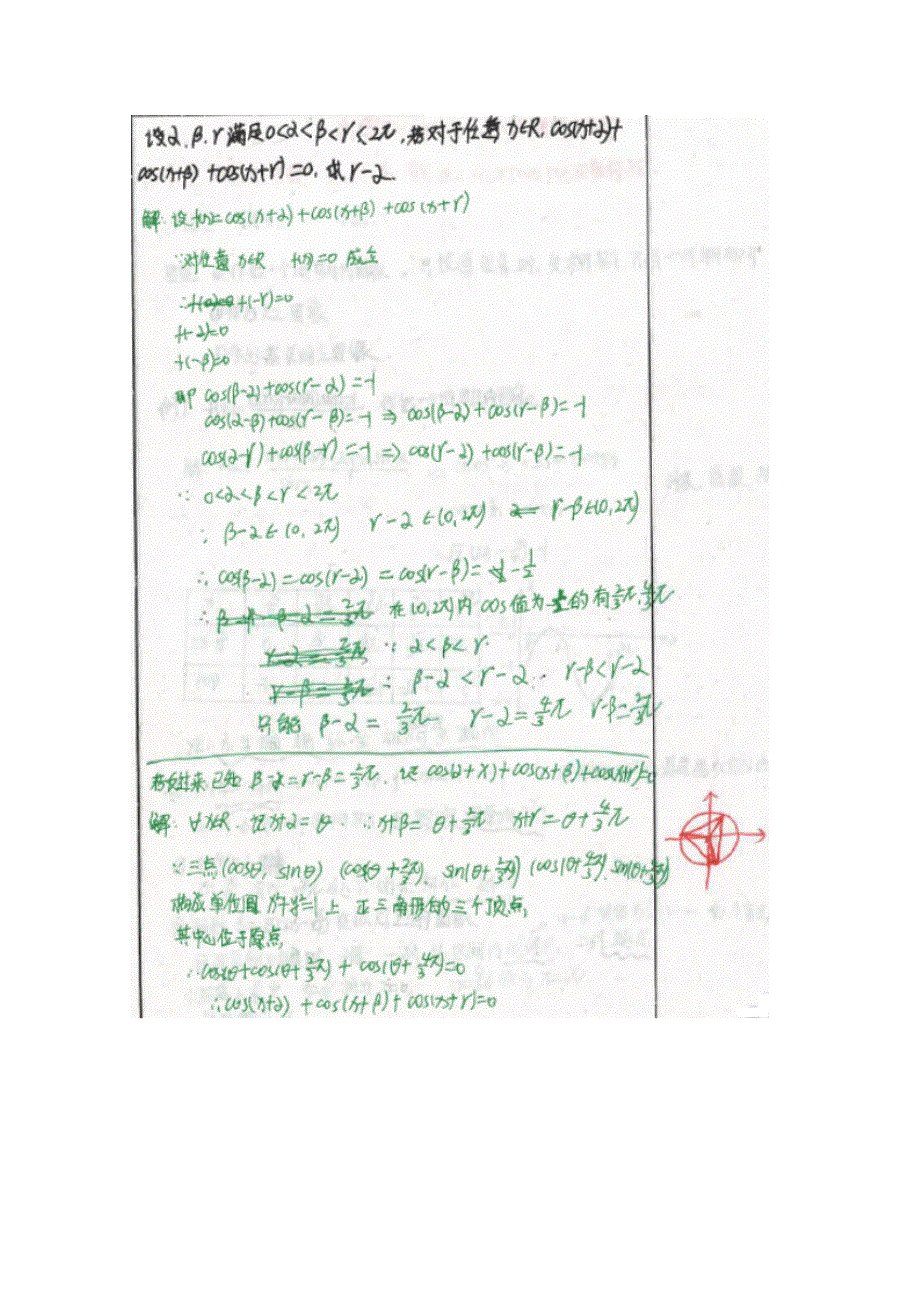 设α,β,γ满足0<α<β<γ<2π,若对于任意x∈R, cos(x+α)+
cos(x+β)+cos(x+γ)=0, 求γ-α.
解: 设f(x)=cos(x+α)+cos(x+β)+cos(x+γ)
∵对任意x∈R f(x)=0 成立
∴ f(-γ)=0
f(-α)=0
f(-β)=0
即 cos(β-α)+cos(γ-α)=-1
cos(α-β)+cos(γ-β)=-1 ⇒ cos(β-α)+cos(γ-β)=-1
cos(α-γ)+cos(β-γ)=-1 ⇒ cos(γ-α)+cos(γ-β)=-1
∵ 0<α<β<γ<2π
∴ β-α∈(0,2π) γ-α∈(0,2π) γ-β∈(0,2π)
∴ cos(β-α)=cos(γ-α)=cos(γ-β)=-1/2
∴ 在(0,2π)内 cos值为-1/2的有2/3π,4/3π
∵ α<β<γ
∴ β-α<γ-α ∵ γ-β<γ-α
只能 β-α=2/3π γ-α=4/3π γ-β=2/3π
若反过来 已知 β-α=γ-β=2/3π. 证 cos(α+x)+cos(x+β)+cos(x+γ)=0
解: ∀x∈R, 记x+α=θ ∴ x+β=θ+2/3π x+γ=θ+4/3π
∵三点(cosθ, sinθ) (cos(θ+2π/3), sin(θ+2/3π)) (cos(θ+4π/3), sin(θ+4/3π))
构成单位圆 x²+y²=1上 正三角形的三个顶点,
其中心位于原点,
∴cosθ+cos(θ+2/3π)+cos(θ+4/3π)=0
∴cos(x+α)+cos(x+β)+cos(x+γ)=0